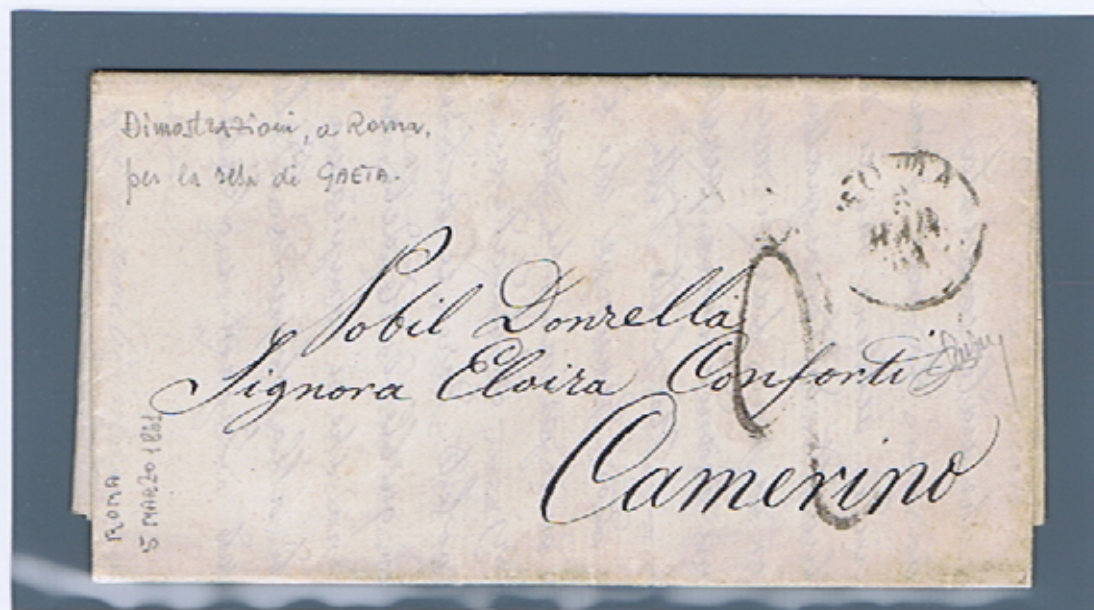 Dimostrazioni, a Roma,
per la resa di GAETA.
ROMA
5
MAR
61
Nobil Donzella
Signora Elvira Conforti
Camerino
ROMA
5 MARZO 1861